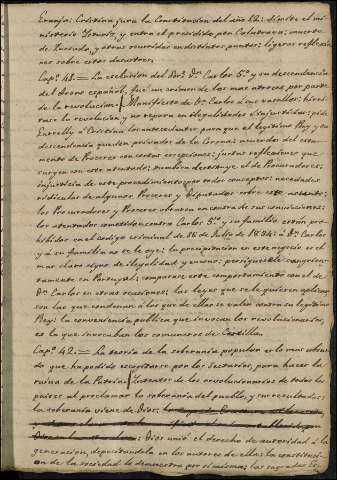 Granja: Cristina jura la Constitucion del año 12: dimite el ministerio
y entra el presidido por Calatrava: muerte
de Quesada, y otras ocurridas en distintos puntos: ligeras reflexiones
sobre estos desastres.
Cap.º 41. = La exclusion del Sor. Dn. Carlos 5.º y su descendencia
del trono español, fué un crimen de los mas atroces por parte
de la revolucion: Manifiesto de Dn. Carlos a sus vasallos:
la revolucion y no repara en ilegalidades e injusticias: pide
a Cristina los antecedentes para que el legitimo Rey y su
descendencia queden privados de la Corona: acuerdos del estamento
de Proceres con cortas excepciones: justas reflexiones que
surgen con este atentado: tambien el de Procuradores:
injusticia de este procedimiento por todos conceptos: necedades
ridiculas de algunos Proceres y Diputados sobre este
los Procuradores y Proceres obraron en contra de sus convicciones:
los atentados cometidos contra Carlos 5.º y su familia están prohibidos
en el codigo criminal de 16 de Julio de 1834: á Dn. Carlos
y á su familia no se le oye: la precipitacion en este negocio es el
mas claro signo de ilegalidad y encono: persiguese
en Portugal: comparase este comportamiento con el de
Dn. Carlos en otras ocasiones: las leyes que se le quieren aplicar
son las que condenan á los que de ellas se valen contra su legitimo
Rey: la conveniencia publica que invocan los revolucionarios,
es la que invocaban los comuneros de Castilla.
Cap.º 42. = La teoria de la soberania popular es lo mas absurdo
que ha podido escogitarse por los sectarios, para hacer la
ruina de la Patria: Intentos de los revolucionarios de todos los
paises al proclamar la soberania del pueblo, y sus resultados:
la soberania viene de Dios:
Dios unió el derecho de autoridad á la
generacion, depositandola en los autores de ella: la constitucion
de la sociedad lo demuestra por sí misma: las sagradas Es-